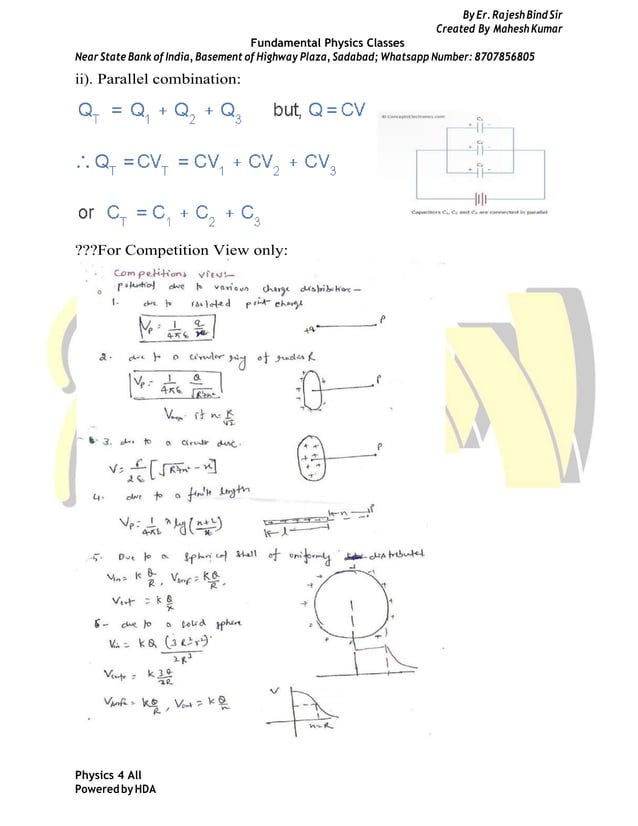 By Er. Rajesh Bind Sir
Created By Mahesh Kumar
Fundamental Physics Classes
Near State Bank of India, Basement of Highway Plaza, Sadabad; Whatsapp Number: 8707856805
ii). Parallel combination:
Q_T = Q_1 + Q_2 + Q_3 but, Q = CV
∴ Q_T = CV_T = CV_1 + CV_2 + CV_3
or C_T = C_1 + C_2 + C_3
© ConceptsElectronics.com
C₁
C₂
C₃
Capacitors C₁, C₂ and C₃ are connected in parallel
???For Competition View only:
Competitions views-
potential due to various charge distribution-
1. due to isolated point charge
V_P =
+q P
2. due to a circular ring of radius R
V_P = 1/4πε Q/√R²+x²
P
3. due to a circular disc.
P
4. due to a finite length
V_P =
P
5. Due to a spherical shell of uniformly distributed
V_in = K Q/R, V_surf = KQ/R,
V_out = K Q/x
6- due to a solid sphere
V_in = KQ (3R²-r²)/2R³
K 3Q/2R
KQ/R, V_out = K Q/x
V
x=R
Physics 4 All
Powered by HDA